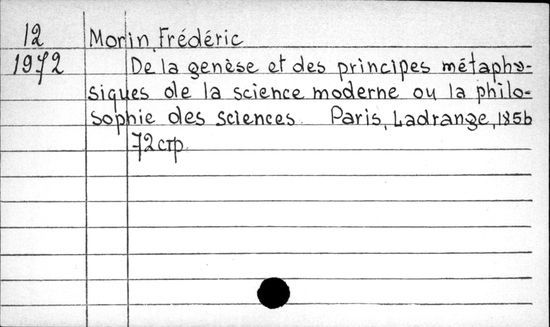 12 Morin, Frédéric
1972 De la genèse et des principes métaphy-
siques de la science moderne ou la philo-
sophie des sciences. Paris, Ladrange, 1856
72 стр.